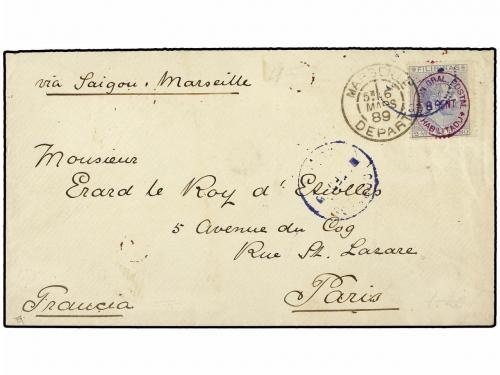 via Saigon. Marseille
FILIPINAS
POSTAL
8 CENT
HABILITADO
5E
6
MARS
89
DEPART
Monsieur
Erard le Roy d'Etiolles
5 Avenue du Coq
Rue St. Lazare
Paris
Francia